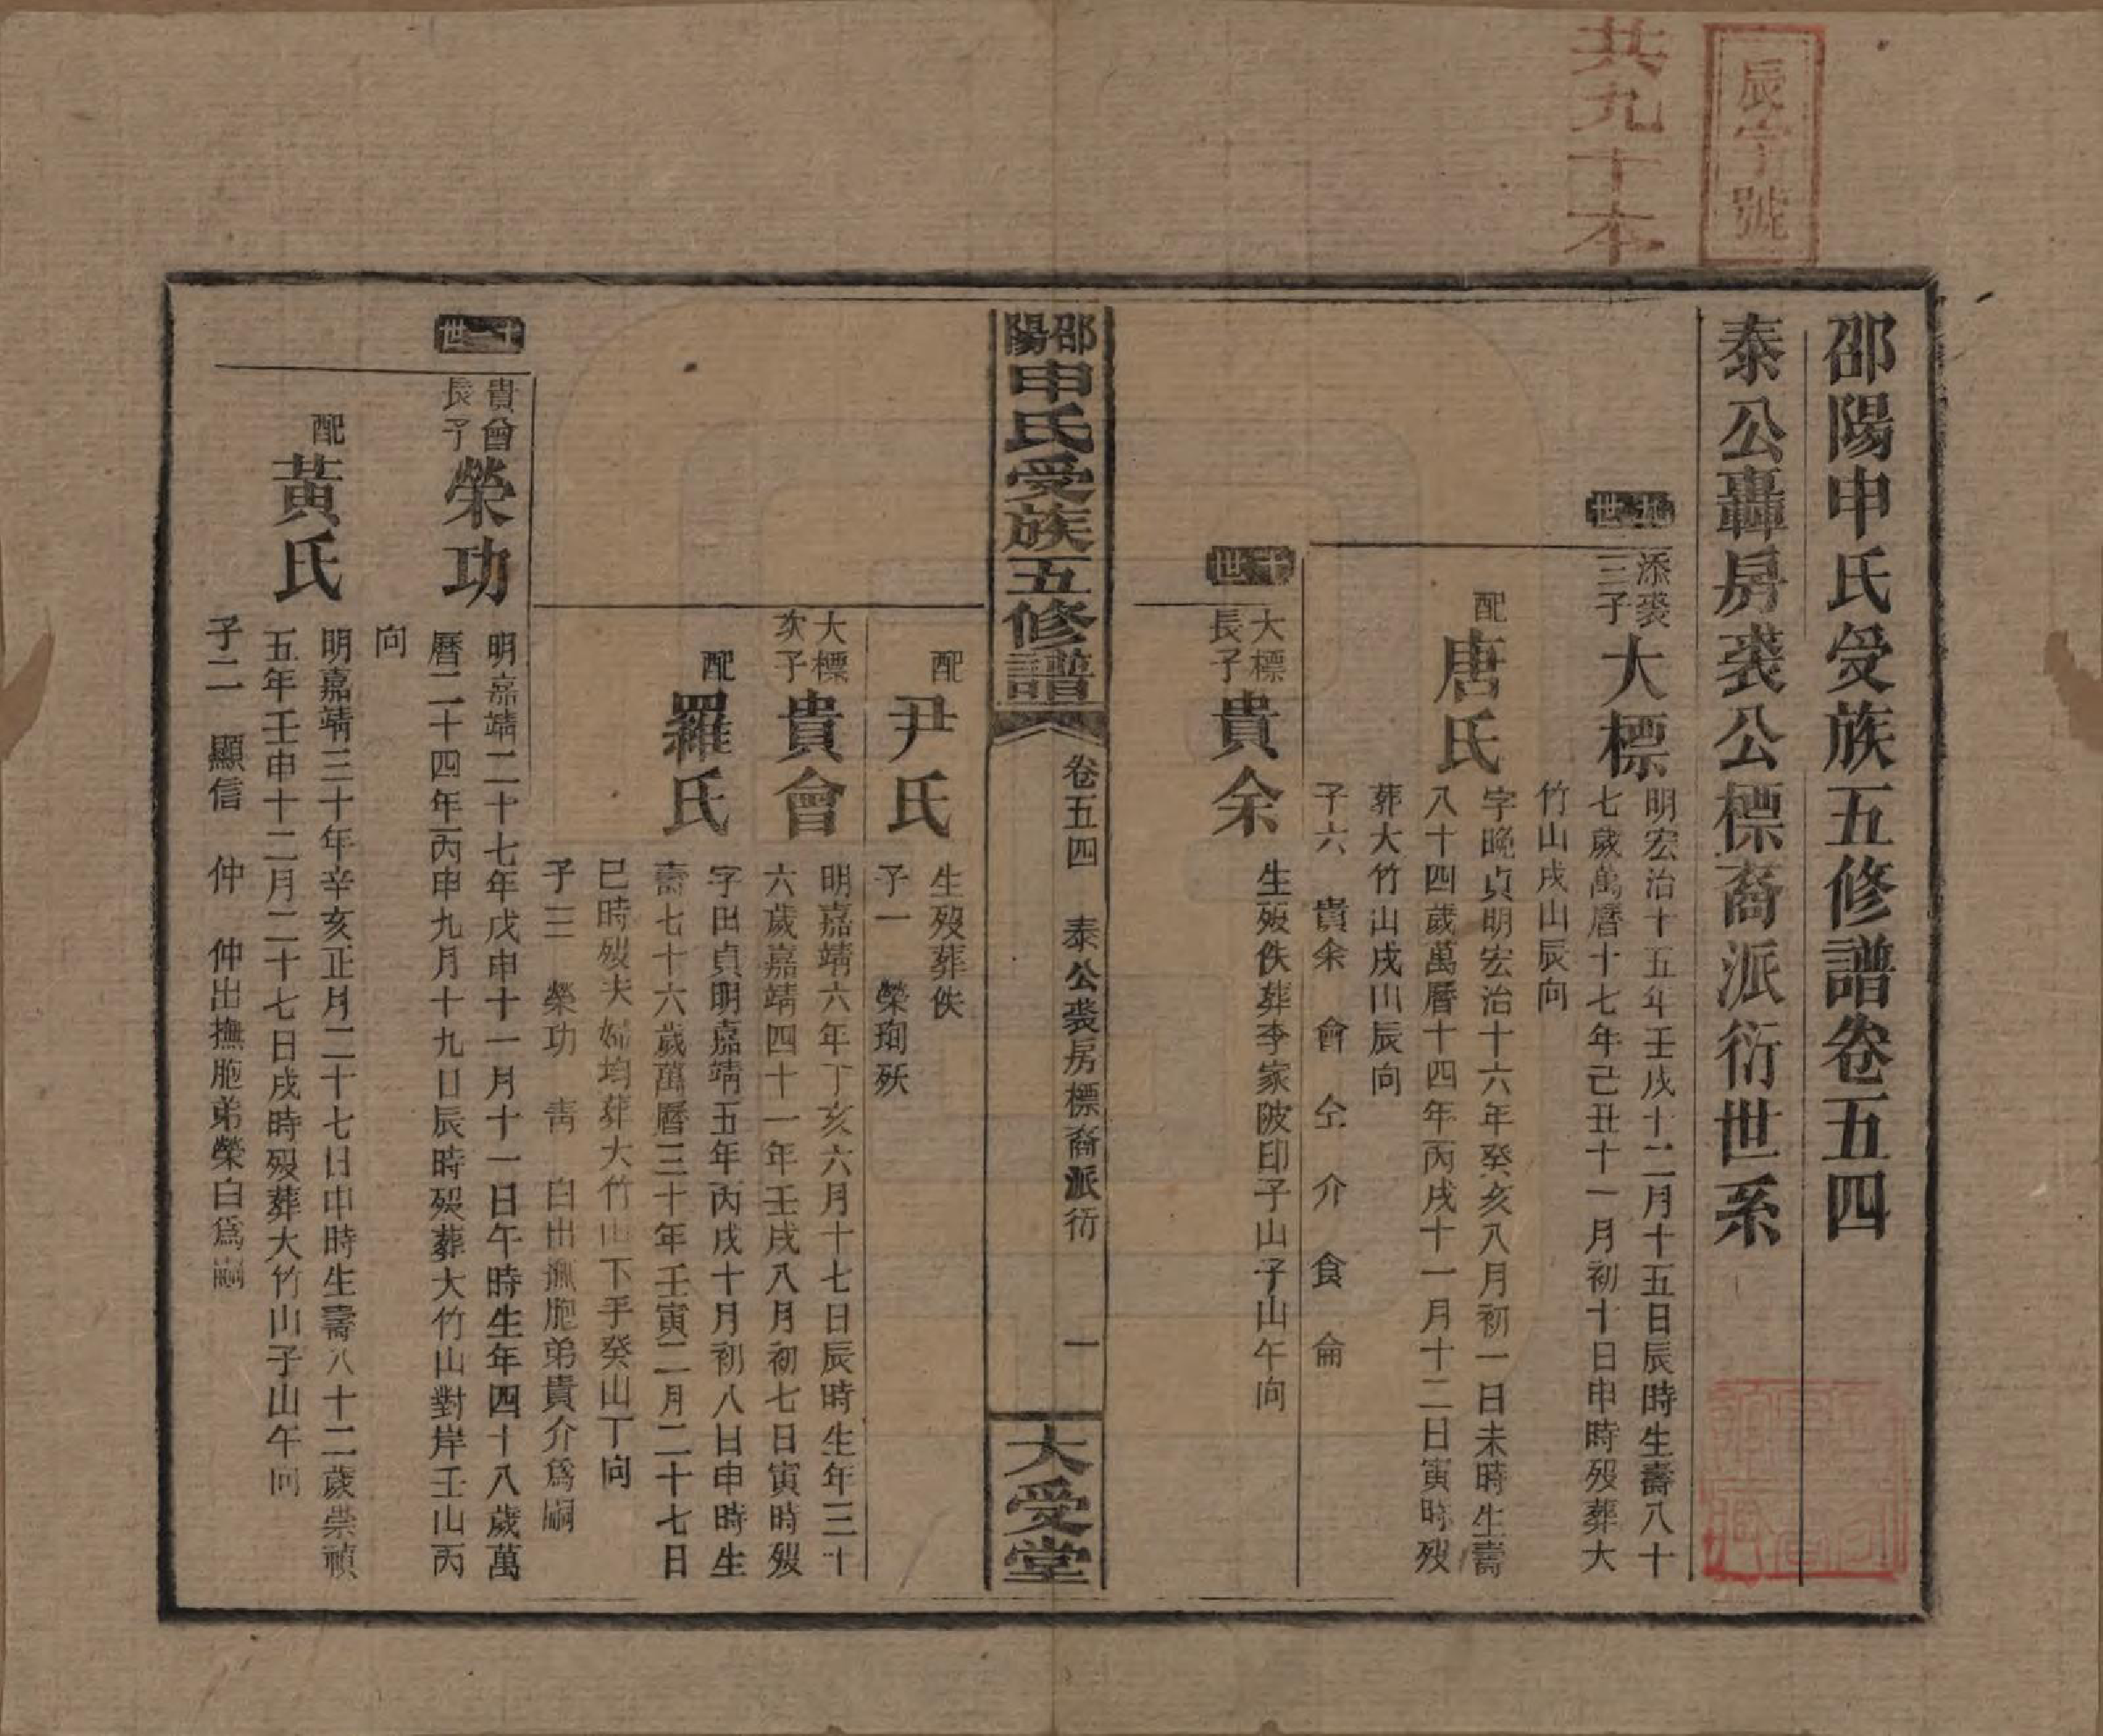 辰字號
共九十本
邵陽申氏受族五修譜卷五四
泰公轟房裘公標裔派衍世系
世
添裘三子
大標
明宏治十五年壬戌十二月十五日辰時生壽八十
七歲萬曆十七年己丑十一月初十日申時歿葬大
竹山戌山辰向
配
唐氏
字晚貞明宏治十六年癸亥八月初一日未時生壽
八十四歲萬曆十四年丙戌十一月十二日寅時歿
葬大竹山戌山辰向
子六 貴余 會 仝 介 食 侖
十世
大標長子
貴余
生歿佚葬李家陂印子山子山午向
邵陽申氏受族五修譜
卷五四 泰公裘房標裔派衍 一
大受堂
配
尹氏
生歿葬佚
子一 榮珣殀
大標次子
貴會
明嘉靖六年丁亥六月十七日辰時生年三十
六歲嘉靖四十一年壬戌八月初七日寅時歿
配
羅氏
字田貞明嘉靖五年丙戌十月初八日申時生
壽七十六歲萬曆三十年壬寅二月二十七日
巳時歿夫婦均葬大竹山下手癸山丁向
子三 榮功 靑 白出撫胞弟貴介爲嗣
十一世
貴會長子
榮功
明嘉靖二十七年戊申十一月十一日午時生年四十八歲萬
曆二十四年丙申九月十九日辰時歿葬大竹山對岸壬山丙
向
配
黃氏
明嘉靖三十年辛亥正月二十七日申時生壽八十二歲崇禎
五年壬申十二月二十七日戌時歿葬大竹山子山午向
子二 顯信 仲 仲出撫胞弟榮白爲嗣